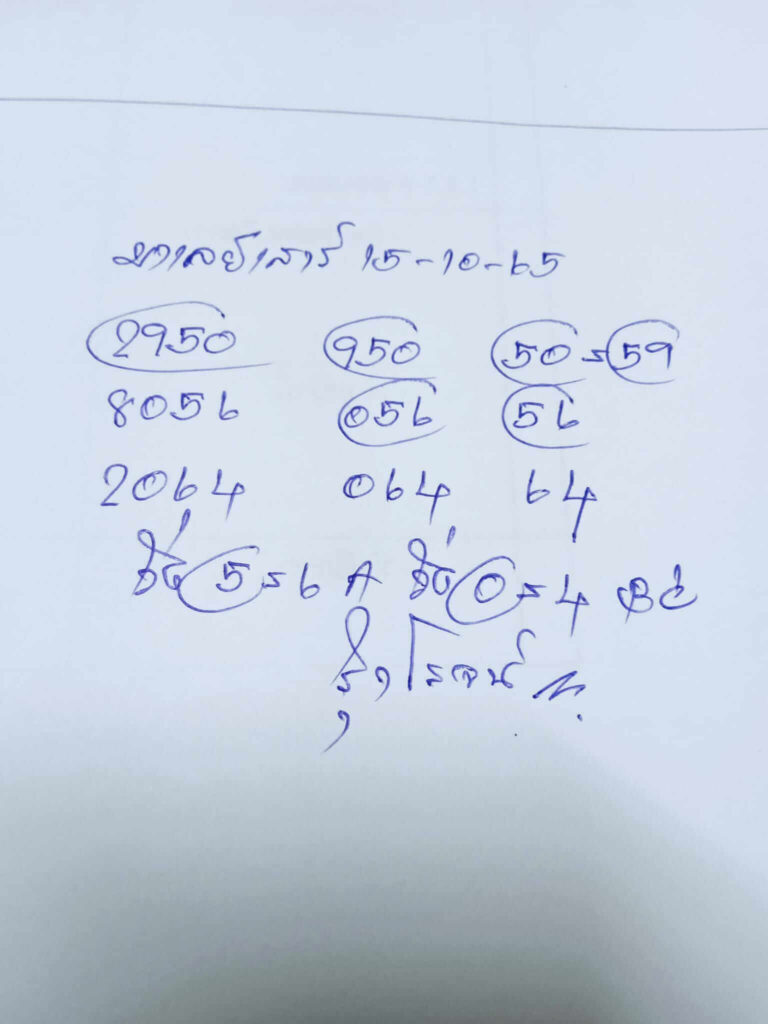 มาเลย์เสาร์ 15-10-65
2950 950 50-59
8056 056 56
2064 064 64
5-6 A 0-4